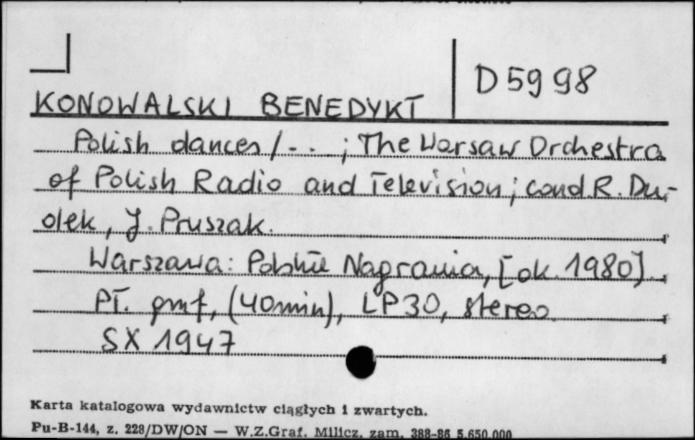 D 5998
KONOWALSKI BENEDYKT
Polish dances / - . . ; The Warsaw Orchestra
of Polish Radio and Television ; cond R. Du-
dek, J. Pruszak.
Warszawa: Polskie Nagrania, [ok. 1980].
Pł. gmf, (40min), LP 30, stereo
SX 1947
Karta katalogowa wydawnictw ciągłych i zwartych.
Pu-B-144, z. 228/DW/ON — W.Z.Graf. Milicz, zam. 388-86 5.650.000